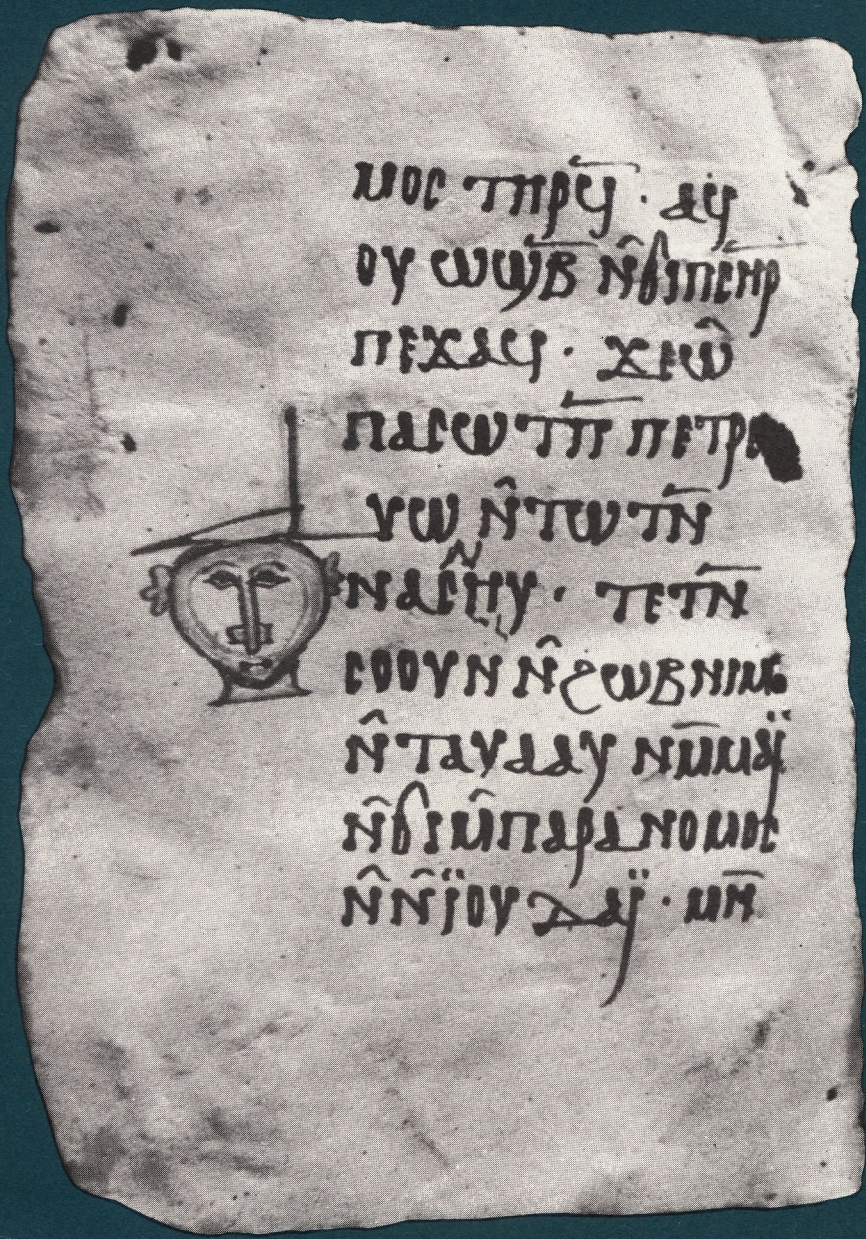 ⲙⲟⲥ ⲧⲏⲣϥ̅ · ⲁϥ
ⲟⲩⲱϣ̅ⲃ ⲛ̂ϭⲓⲡⲥⲏⲣ̅
ⲡⲉϫⲁϥ · ϫⲉⲱ̂
ⲡⲁⲥⲱⲧⲡ̅
ⲩⲱ ⲛ̂ⲧⲱⲧⲛ̅
ⲛⲁⲥⲛⲏⲩ · ⲧⲉⲧⲛ̅
ⲥⲟⲟⲩⲛ ⲛ̂ϩⲱⲃ ⲛⲓⲙ
ⲛ̂ⲧⲁⲩⲁⲁⲩ ⲛⲙ̅ⲙⲁⲓ̈
ⲛ̂ϭⲓⲙ̂ⲡⲁⲣⲁⲛⲟⲙⲟⲥ
ⲛ̂ⲛ̂ⲓ̈ⲟⲩⲇⲁⲓ̈ · ⲙⲛ̅